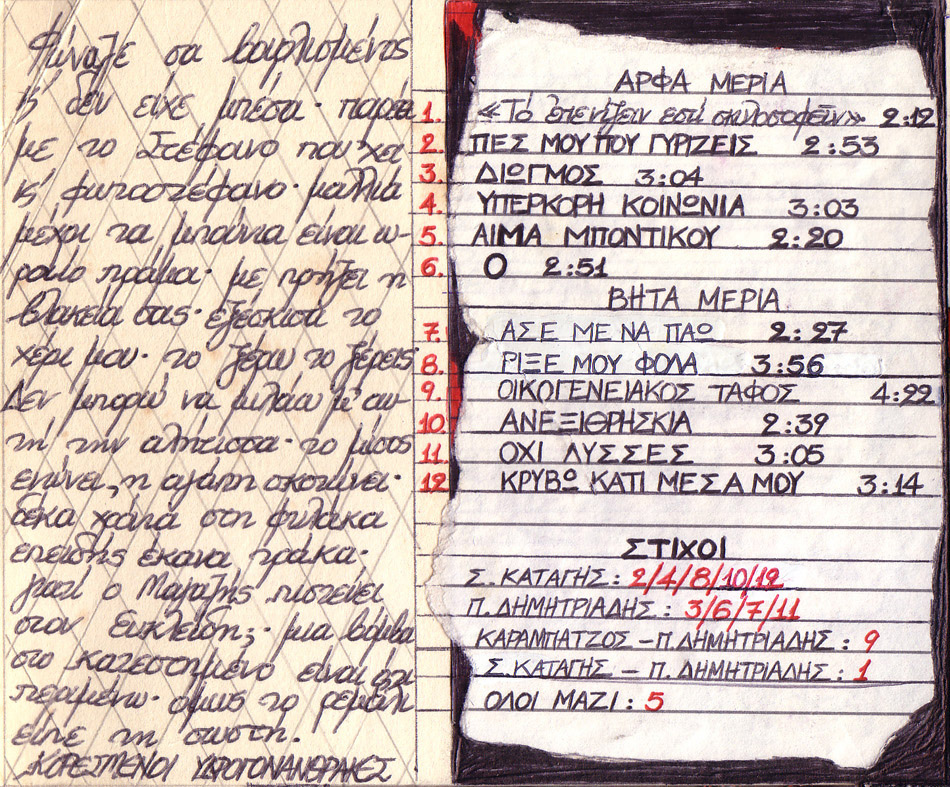 Φώναζε σα βουρλισμένος
κ' δεν είχε μπέσα· παρέα
με το Στέφανο που 'χει
κ' φωτοστέφανο· μαλλιά
μέχρι τα μπούνια είναι ω-
ραίο πράμα· με πρήζει η
βλακεία σας· εξέσκισα το
χέρι μου· το ξέρω το ξέρεις
Δεν μπορώ να μιλάω μ' αυ-
τή την αλήτισσα· το μίσος
ενώνει, η αγάπη σκοτώνει·
δέκα χρόνια στη φυλακα
επειδής έκανα τράκα·
γιατί ο Μαγαζής πιστεύει
στον Ευκλείδη; · μια βόμβα
στο κατεστημένο είναι ότι
περιμένω· όμως το ρεμάλι
είπε τη σωστή.
ΚΟΡΕΣΜΕΝΟΙ ΥΔΡΟΓΟΝΑΝΘΡΑΚΕΣ
ΑΡΦΑ ΜΕΡΙΑ
1. «Το εστί» 2:12
2. ΠΕΣ ΜΟΥ ΠΟΥ ΓΥΡΙΖΕΙΣ 2:53
3. ΔΙΩΓΜΟΣ 3:04
4. ΥΠΕΡΚΟΡΗ ΚΟΙΝΩΝΙΑ 3:03
5. ΑΙΜΑ ΜΠΟΝΤΙΚΟΥ 2:20
6. Ο 2:51
ΒΗΤΑ ΜΕΡΙΑ
7. ΑΣΕ ΜΕ ΝΑ ΠΑΩ 2:27
8. ΡΙΞΕ ΜΟΥ ΦΟΛΑ 3:56
9. ΟΙΚΟΓΕΝΕΙΑΚΟΣ ΤΑΦΟΣ 4:22
10. ΑΝΕΞΙΘΡΗΣΚΙΑ 2:39
11. ΟΧΙ ΛΥΣΣΕΣ 3:05
12 ΚΡΥΒΩ ΚΑΤΙ ΜΕΣΑ ΜΟΥ 3:14
ΣΤΙΧΟΙ
Σ. ΚΑΤΑΓΗΣ: 2/4/8/10/12
Π. ΔΗΜΗΤΡΙΑΔΗΣ: 3/6/7/11
ΚΑΡΑΜΠΑΤΖΟΣ - Π. ΔΗΜΗΤΡΙΑΔΗΣ: 9
Σ. ΚΑΤΑΓΗΣ - Π. ΔΗΜΗΤΡΙΑΔΗΣ: 1
ΟΛΟΙ ΜΑΖΙ: 5